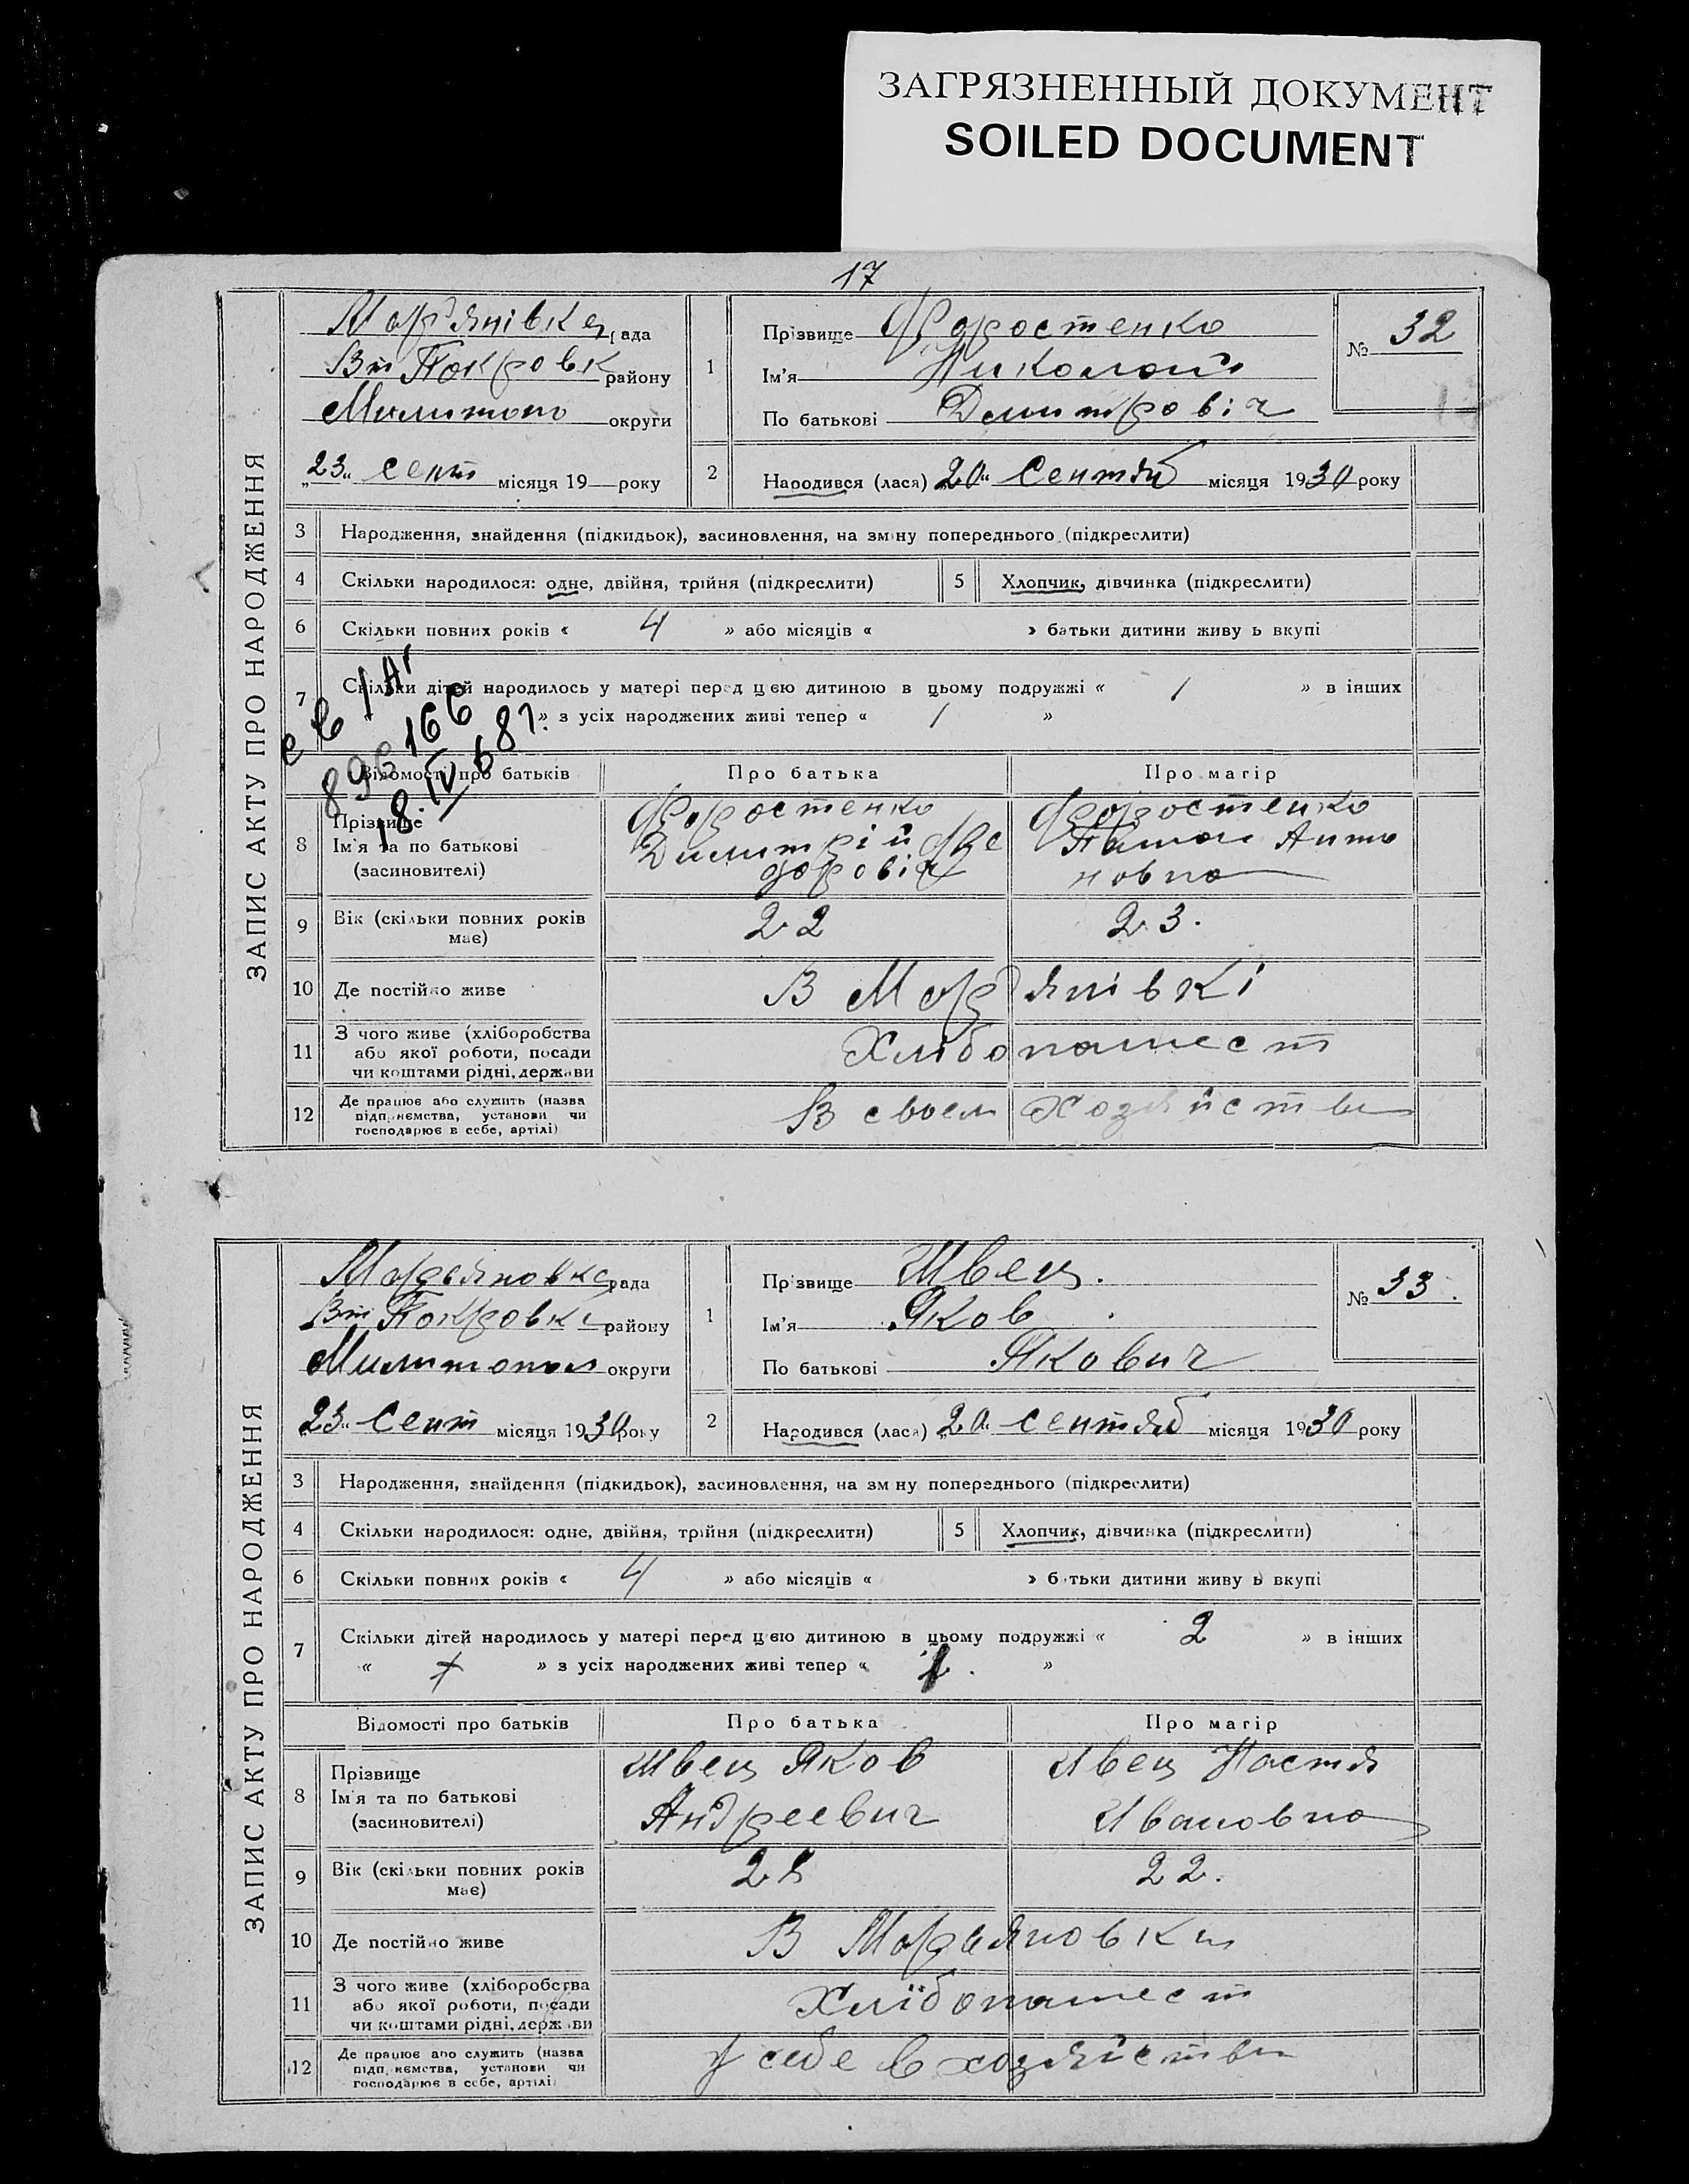 ЗАГРЯЗНЕННЫЙ ДОКУМЕНТ
SOILED DOCUMENT
17
ЗАПИС АКТУ ПРО НАРОДЖЕННЯ
Мар'янівка рада
Вт Покровк району
округи
„23„ сент місяця 19 року
1
Прізвище Форостенко
Ім'я Николай
По батькові Дмитровіч
№ 32
2
Народився (лася) „20„ Сентяб місяця 1930 року
3 Народження, знайдення (підкидьок), засиновлення, на зміну попереднього (підкреслити)
4 Скільки народилося: одне, двійня, трійня (підкреслити)
5 Хлопчик, дівчинка (підкреслити)
6 Скільки повних років « 4 » або місяців « » батьки дитини живу ь вкупі
7 Скільки дітей народилось у матері перед цією дитиною в цьому подружжі « 1 » в інших
» з усіх народжених живі тепер « 1 »
896166
18.IV 68
Відомості про батьків Про батька Про матір
8
Прізвище
Ім'я та по батькові
(засиновителі)
Форостенко
Дмитрій Фе
доровіч
Форостенко
Анто
новна
9 Вік (скільки повних років
має)
22
23.
10 Де постійно живе
В Мар'янівкі
11
З чого живе (хліборобства
або якої роботи, посади
чи коштами рідні, держави
Хлібопашест
12
Де працює або служить (назва
підприємства, установи чи
господарює в себе, артілі)
В своем хозяйстве
ЗАПИС АКТУ ПРО НАРОДЖЕННЯ
Марьяновка рада
Вт Покровка району
Милитопол округи
„23„ Сент місяця 1930 року
1
Прізвище Швец.
Ім'я Яков
По батькові Якович
№ 33.
2
Народився (лася) „20„ сентяб місяця 1930 року
3 Народження, знайдення (підкидьок), засиновлення, на зміну попереднього (підкреслити)
4 Скільки народилося: одне, двійня, трійня (підкреслити)
5 Хлопчик, дівчинка (підкреслити)
6 Скільки повних років « 4 » або місяців « » батьки дитини живу ь вкупі
7 Скільки дітей народилось у матері перед цією дитиною в цьому подружжі « 2 » в інших
« » з усіх народжених живі тепер « »
Відомості про батьків Про батька Про матір
8
Прізвище
Ім'я та по батькові
(засиновителі)
Швец Яков
Андреевич
Швец Настя
Ивановна
9 Вік (скільки повних років
має)
28
22.
10 Де постійно живе
В Марьяновки
11
З чого живе (хліборобства
або якої роботи, посади
чи коштами рідні, держави
Хлібопашест
12
Де працює або служить (назва
підприємства, установи чи
господарює в себе, артілі
У себе в хозяйстве